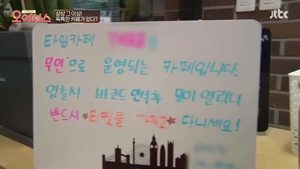 상상 그 이상!
독특한 카페가 있다?
jtbc
타임카페
"무인"으로 운영되는 카페입니다.
입출시 바코드 인식후 문이 열리니
반드시 ★E팟을 가지고★ 다니세요!